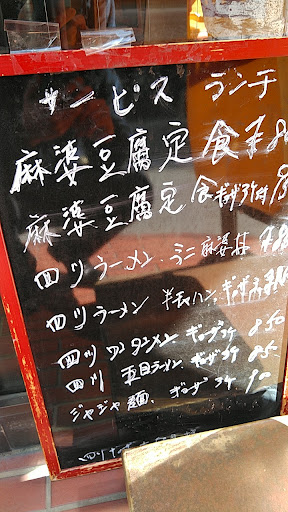 サービス ランチ
麻婆豆腐定食 ¥8
麻婆豆腐定食 ギョーザ3ケ付
四川ラーメン、ミニ麻婆丼 ¥8
四川ラーメン 半チャハン、ギョーザ3ケ
四川 ワンタンメン ギョーザ3ケ 850
四川 五目ラーメン、ギョーザ3ケ 85
ジャジャ麺、ギョーザ3ケ 90